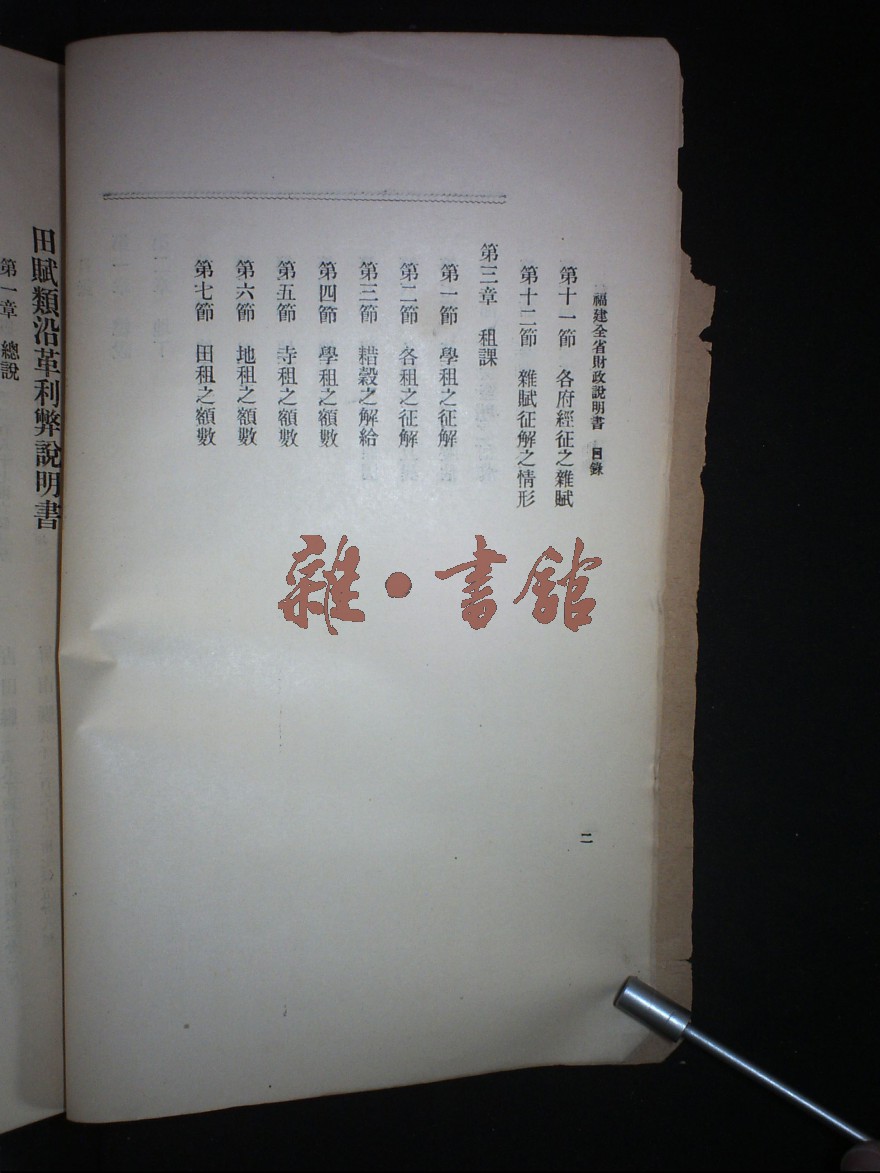 福建全省財政說明書 目錄
第十一節 各府經征之雜賦
第十二節 雜賦征解之情形
第三章 租課
第一節 學租之征解
第二節 各租之征解
第三節 耤穀之解給
第四節 學租之額數
第五節 寺租之額數
第六節 地租之額數
第七節 田租之額數
二
田賦類沿革利弊說明書
第一章 總說
雜·書館